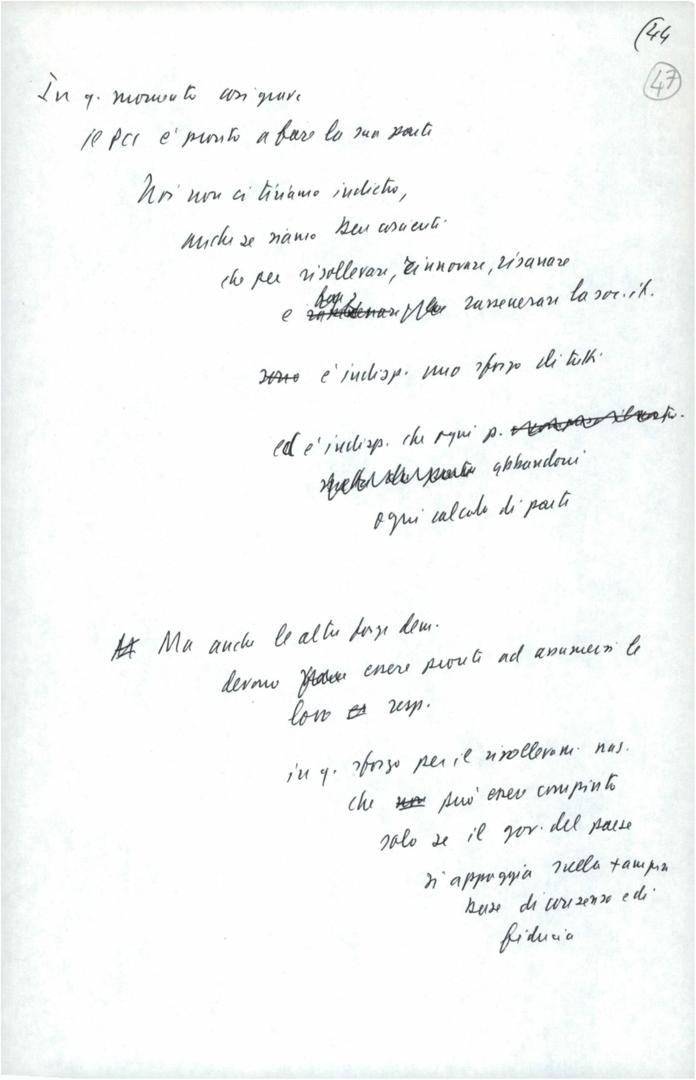 (44
47
In q. momento così grave
il PCI è pronto a fare la sua parte
Noi non ci tiriamo indietro,
anche se siamo ben coscienti
che per risollevare, rinnovare, risanare
e rasserenare la soc. it.
sono è indisp. uno sforzo di tutti
ed è indisp. che ogni p.
abbandoni
ogni calcolo di parte
Ma anche le altre forze dem.
devono essere pronte ad assumersi le
loro resp.
in q. sforzo per il risollevam. naz.
che non può essere compiuto
solo se il gov. del paese
si appoggia sulla + ampia
base di consenso e di
fiducia